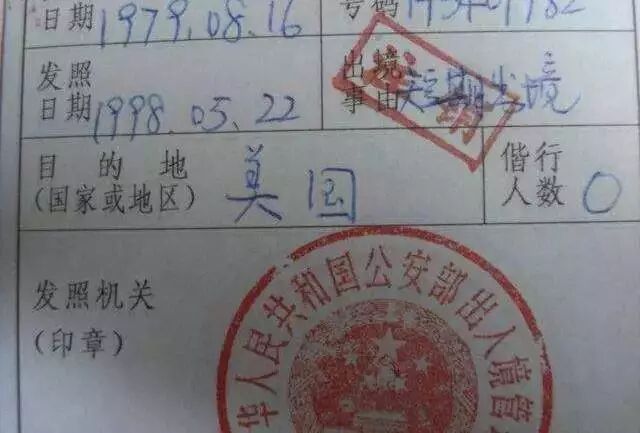 日期 1979.08.16
号码
发照日期 1998.05.22
出境事由 短期出境
目的地(国家或地区) 美国
偕行人数 0
发照机关(印章)
华人民共和国公安部出入境管